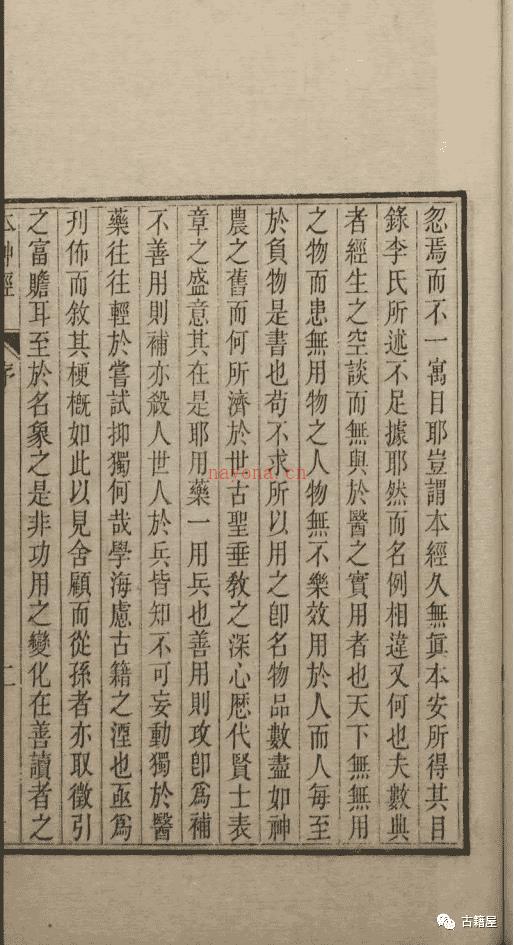 忽焉而不一寓目耶豈謂本經久無眞本安所得其目
錄李氏所述不足據耶然而名例相違又何也夫數典
者經生之空談而無與於醫之實用者也天下無無用
之物而患無用物之人物無不樂效用於人而人每至
於負物是書也苟不求所以用之卽名物品數盡如神
農之舊而何所濟於世古聖垂敎之深心歷代賢士表
章之盛意其在是耶用藥一用兵也善用則攻卽爲補
不善用則補亦殺人世人於兵皆知不可妄動獨於醫
藥往往輕於嘗試抑獨何哉學海慮古籍之湮也亟爲
刋佈而敘其梗槪如此以見舍顧而從孫者亦取徵引
之富贍耳至於名象之是非功用之變化在善讀者之
序
二
nayona.cn
古籍屋